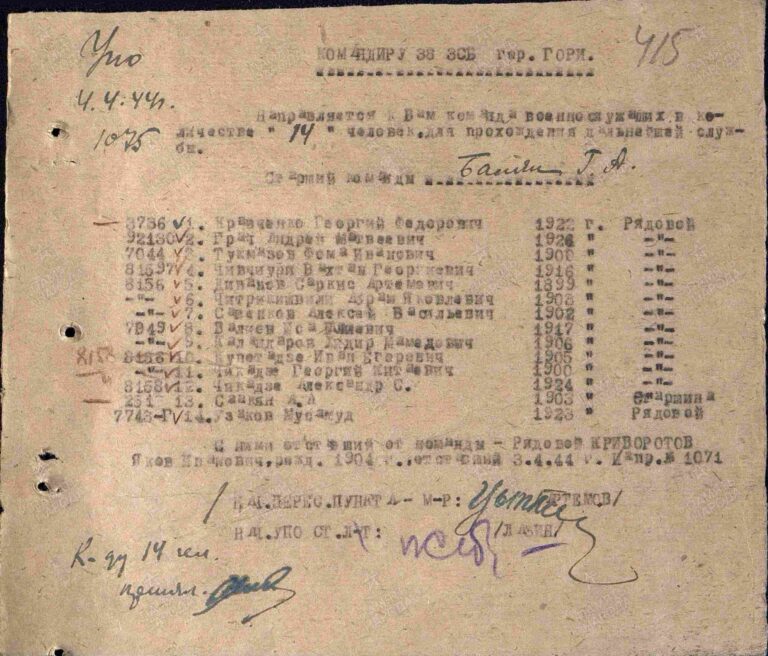 КОМАНДИРУ 38 ЗСБ гор. ГОРИ.
415
4.4.44г.
1075
Направляется к Вам команда военнослужащих в ко-
личестве " 14 " человек, для прохождения дальнейшей служ-
бы.
Старший команды Г. А.
3736 1. Кравченко Георгий Федорович 1922 г. Рядовой
92130 2. Грач Андрей Матвеевич 1926 " -"-
7044 3. Тукмазов Фома Иванович 1900 " -"-
81597 4. Чивчиури Вахтан Георгиевич 1916 " -"-
8156 5. Диванов Саркис Артемович 1899 " -"-
-"- 6. Абрам Яковлевич 1903 " -"-
-"- 7. Савенков Алексей Васильевич 1902 " -"-
7949 8. Валиев Иса 1917 " -"-
-"- 9. Каландаров Мамедович 1906 " -"-
8158 8156 10. Купатадзе Иван Егорович 1905 " -"-
-"- 11. Чикадзе Георгий 1900 " -"-
8158 12. Чикадзе Александр С. 1924 " -"-
251 13. Саакян А.А 1903 " Старшина
7743-Г 14. Узаков 1923 " Рядовой
С ними отставший от команды - Рядовой КРИВОРОТОВ
Яков Иванович, рожд. 1904 г., отставший 3.4.44 г. Напр.№ 1071
НАЧ.ПЕРЕС.ПУНКТА - М-Р: /АРТЕМОВ/
НАЧ.УПО СТ.Л-Т: /ЛАЗИН/
К-ду 14 чел.
принял.